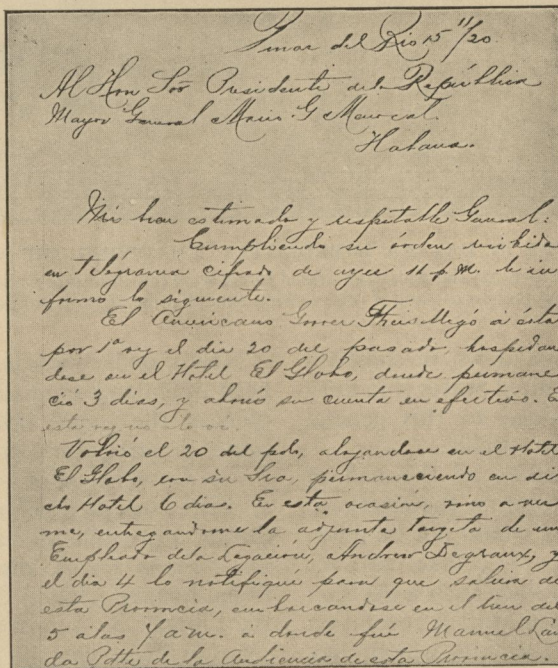 Pinar del Rio 15 11/20
Al Hon Sor Presidente de la República
Mayor General Mario G Menocal.
Habana.
Mi bien estimado y respetable General:
Cumpliendo su órden recibida
en Telégrama cifrado de ayer 11 p.m. le in
formo lo siguiente.
El Americano llegó á ésta
por 1ª vez el dia 20 del pasado, hospedan
dose en el Hotel El Globo, donde permane
ció 3 dias, y abonó su cuenta en efectivo. E
esta vez no lo ví.
Volvió el 20 del pdo, alojandose en el Hotel
El Globo, con su Sra, permaneciendo en di
cho Hotel 6 dias. En esta ocasión, vino a ver
me, entregandome la adjunta targeta de un
Empleado de la Legación, Andrew Degraux, y
el dia 4 lo notifiqué para que saliera de
esta Provincia, embarcandose en el tren de
5 á las 7 a.m. á donde fué Manuel Lan
da Pdte de la Audiencia de esta Provincia.